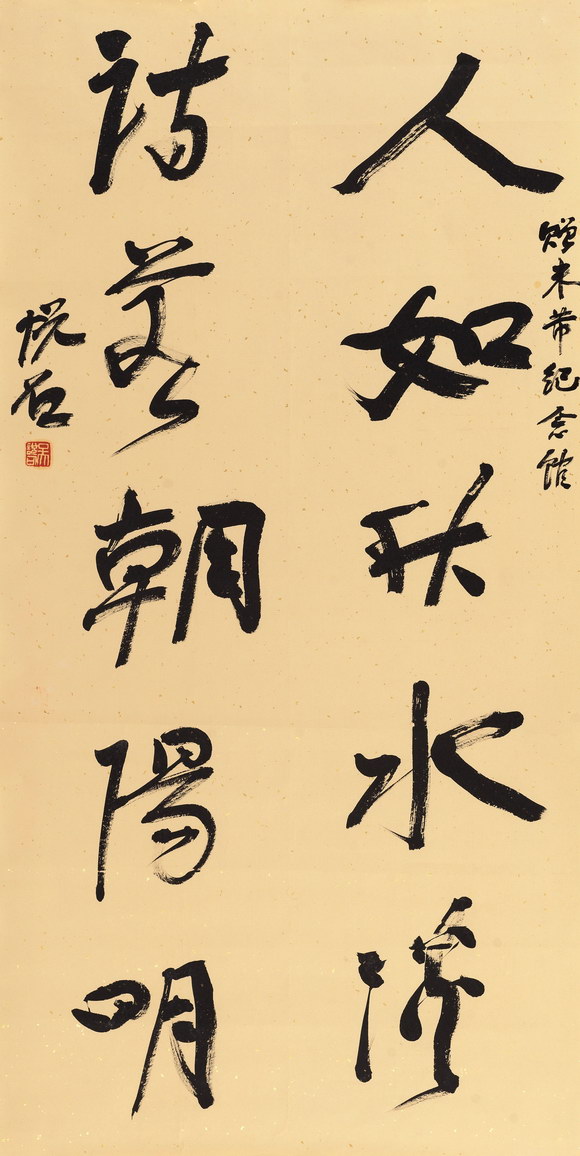 贈米芾紀念館
人如秋水淨
詩若朝陽明
悦石